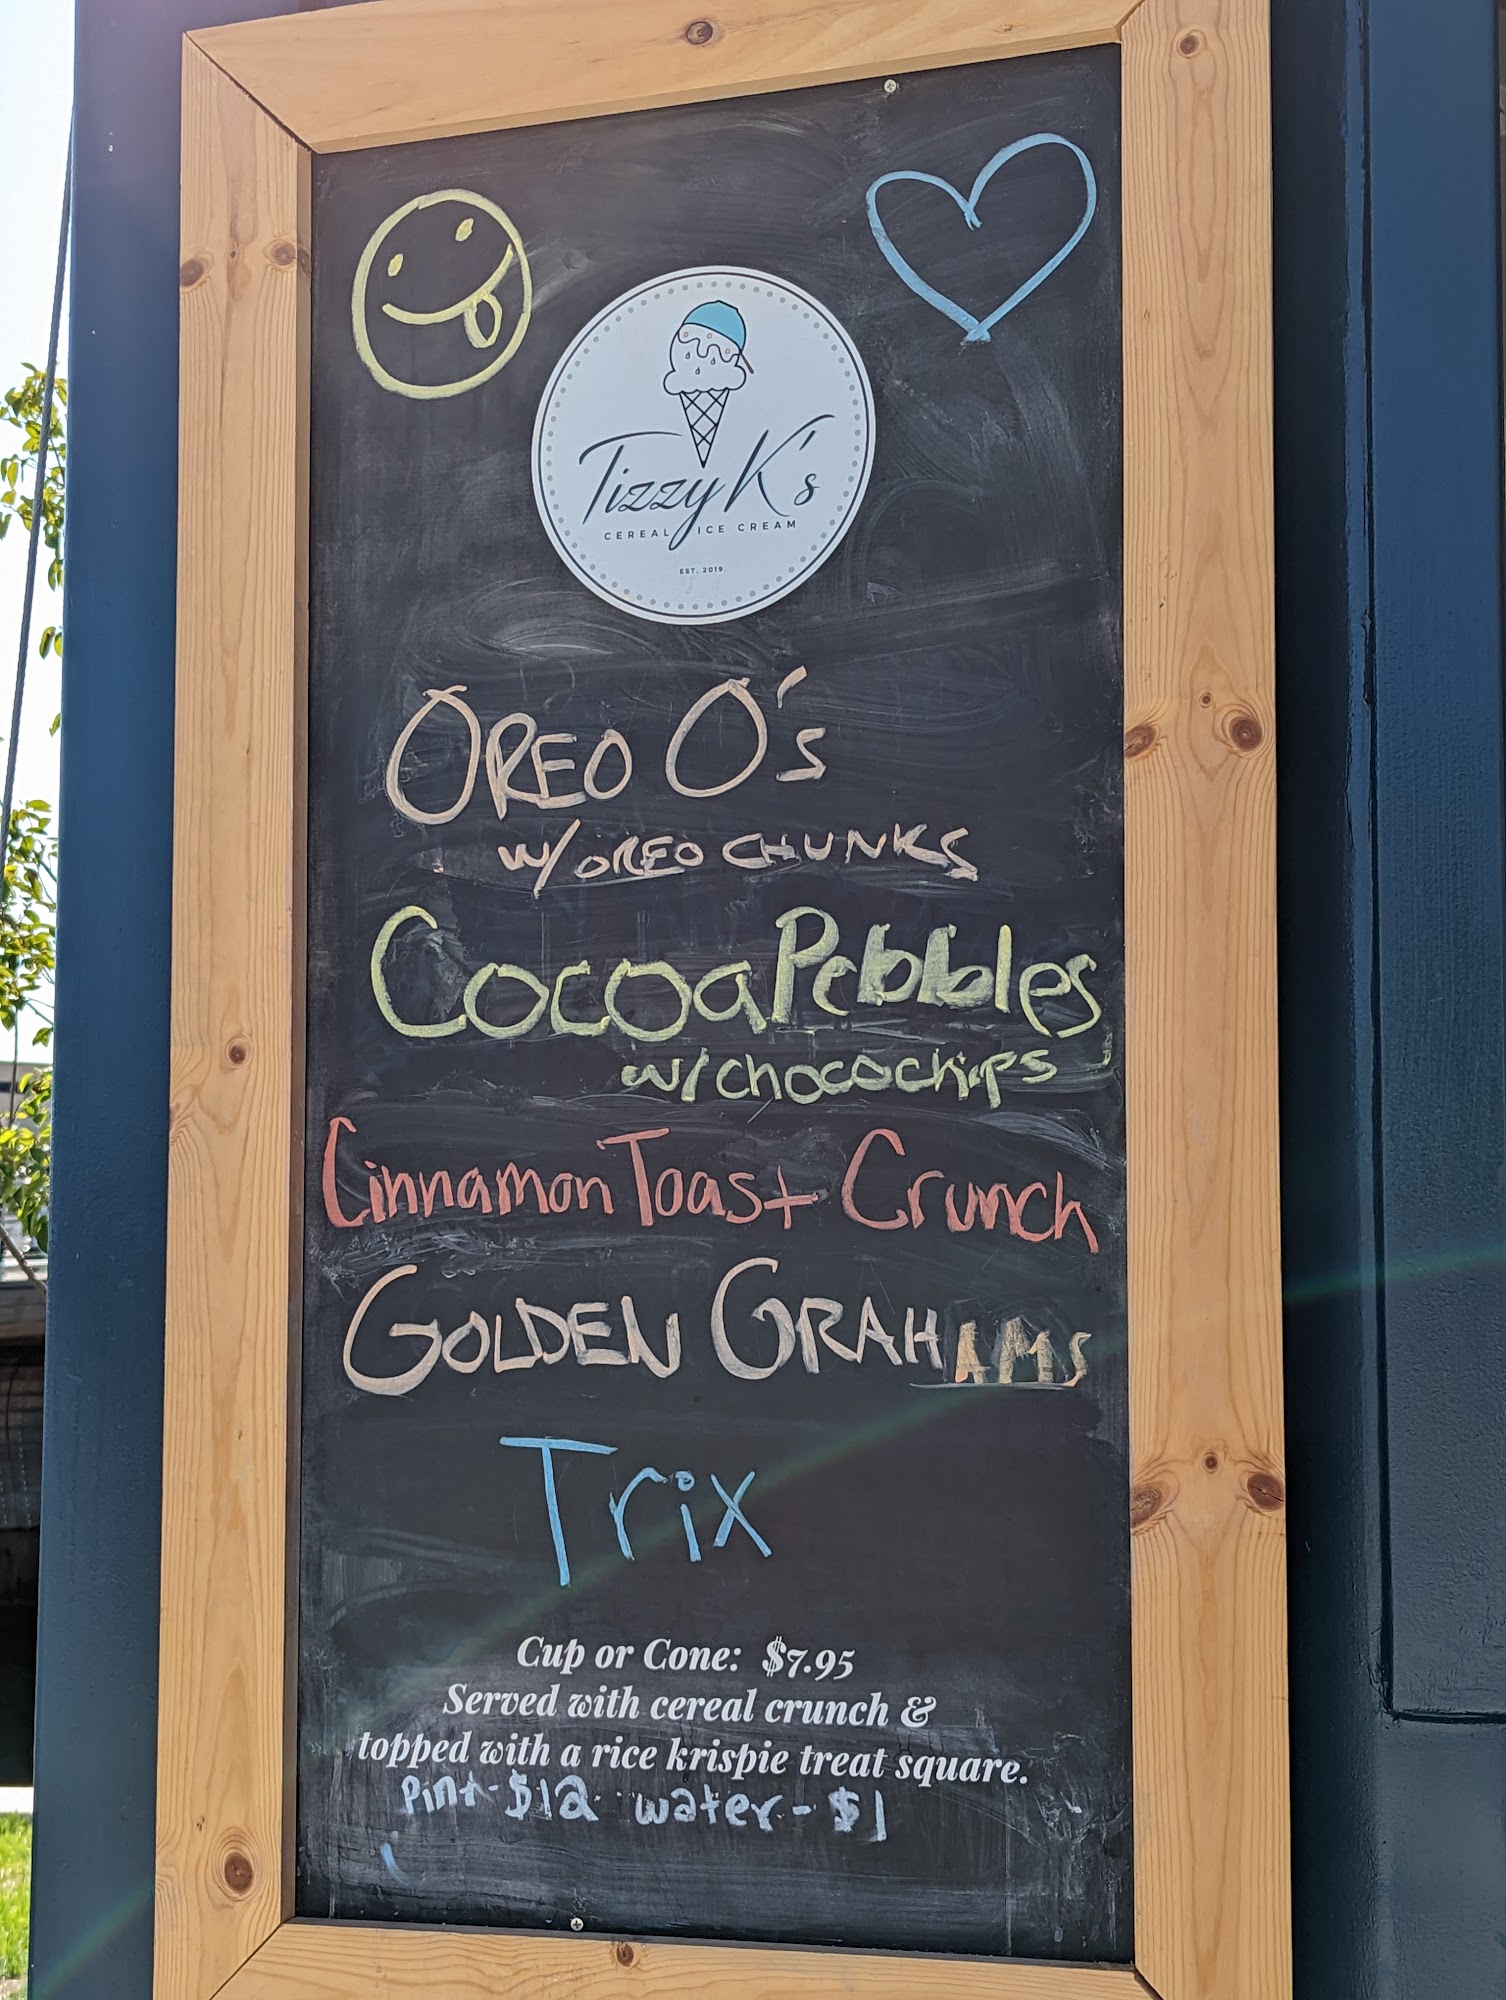 Tizzy K's
CEREAL ICE CREAM
EST. 2019
OREO O's
w/ OREO CHUNKS
Cocoa Pebbles
w/ chocochips
Cinnamon Toast Crunch
GOLDEN GRAHAMS
Trix
Cup or Cone: $7.95
Served with cereal crunch &
topped with a rice krispie treat square.
Pint-$12 water-$1